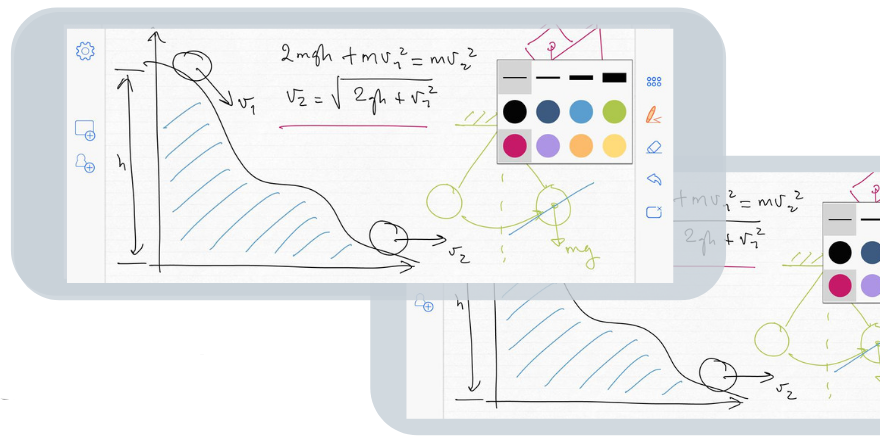 2mgh + mv₁² = mv₂²
v₂ = √(2gh + v₁²)
v₁
h
v₂
mg
+ mv₁² = mv₂²
2gh + v₁²
h
v₂